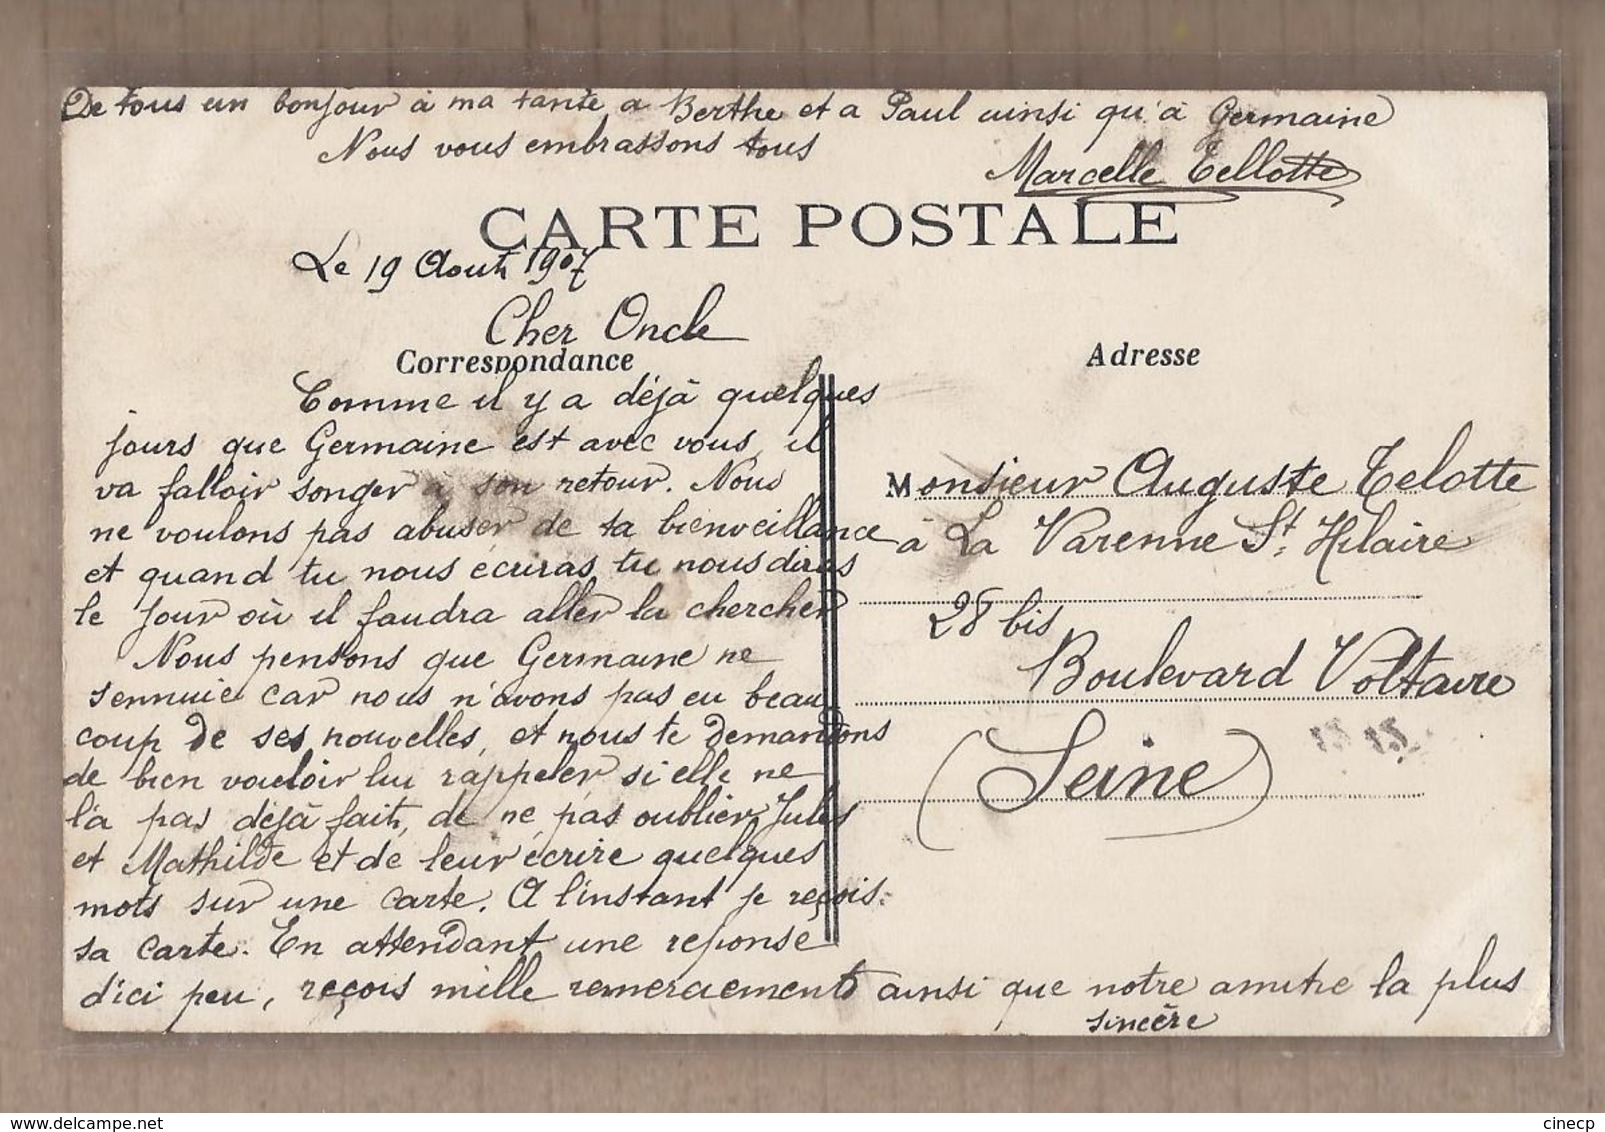 De tous un bonjour à ma tante a Berthe et a Paul ainsi qu'à Germaine
Nous vous embrassons tous
Marcelle Tellotte
CARTE POSTALE
Le 19 Aout 1907
Cher Oncle
Correspondance
Comme il y a déjà quelques
jours que Germaine est avec vous, il
va falloir songer à son retour. Nous
ne voulons pas abuser de ta bienveillance
et quand tu nous écriras tu nous diras
le jour où il faudra aller la chercher
Nous pensons que Germaine ne
sennuie car nous n'avons pas eu beau
coup de ses nouvelles, et nous te demandons
de bien vouloir lui rappeler si elle ne
l'a pas déjà fait, de ne pas oublier Jules
et Mathilde et de leur écrire quelques
mots sur une carte. A l'instant je reçois
sa carte. En attendant une reponse
d'ici peu, reçois mille remerciements ainsi que notre amitié la plus
sincère
Adresse
Monsieur Auguste Telotte
à La Varenne St. Hilaire
28 bis
Boulevard Voltaire
(Seine)
www.delcampe.net
cinecp